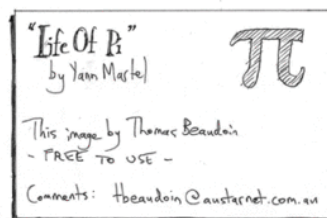 "Life Of Pi"
by Yann Martel
π
This image by Thomas Beaudoin
- FREE TO USE -
Comments: tbeaudoin@austarnet.com.au